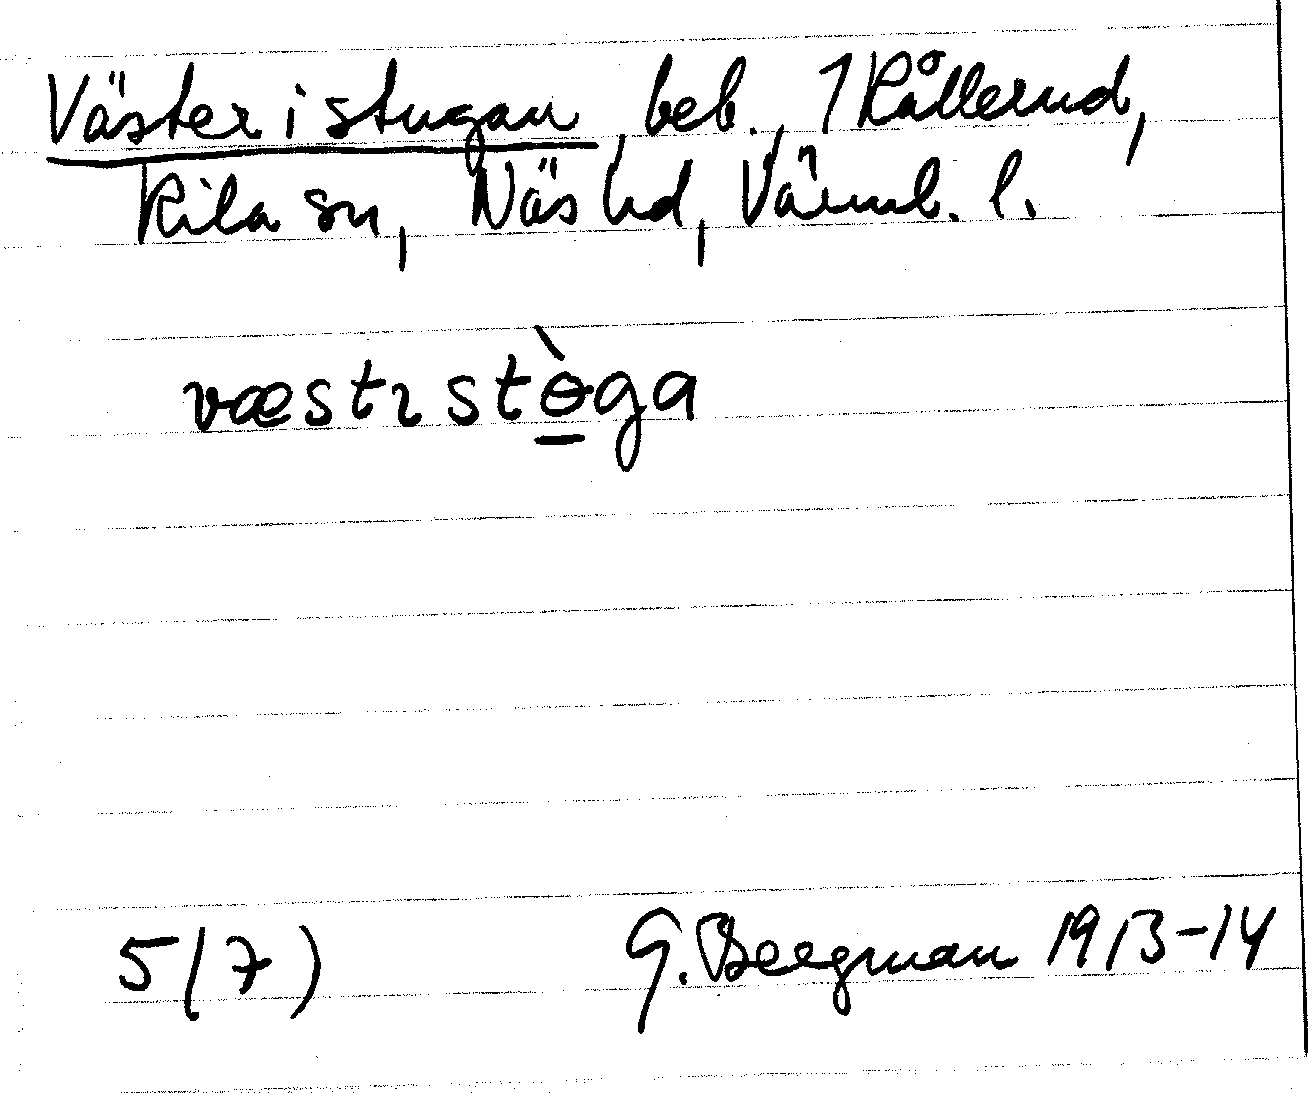 Väster i stugan, beb., 1 Rållerud,
Kila sn, Näs hd, Värml. l.
væstɿstɵ̱̀ga
5(7) G. Bergman 1913-14